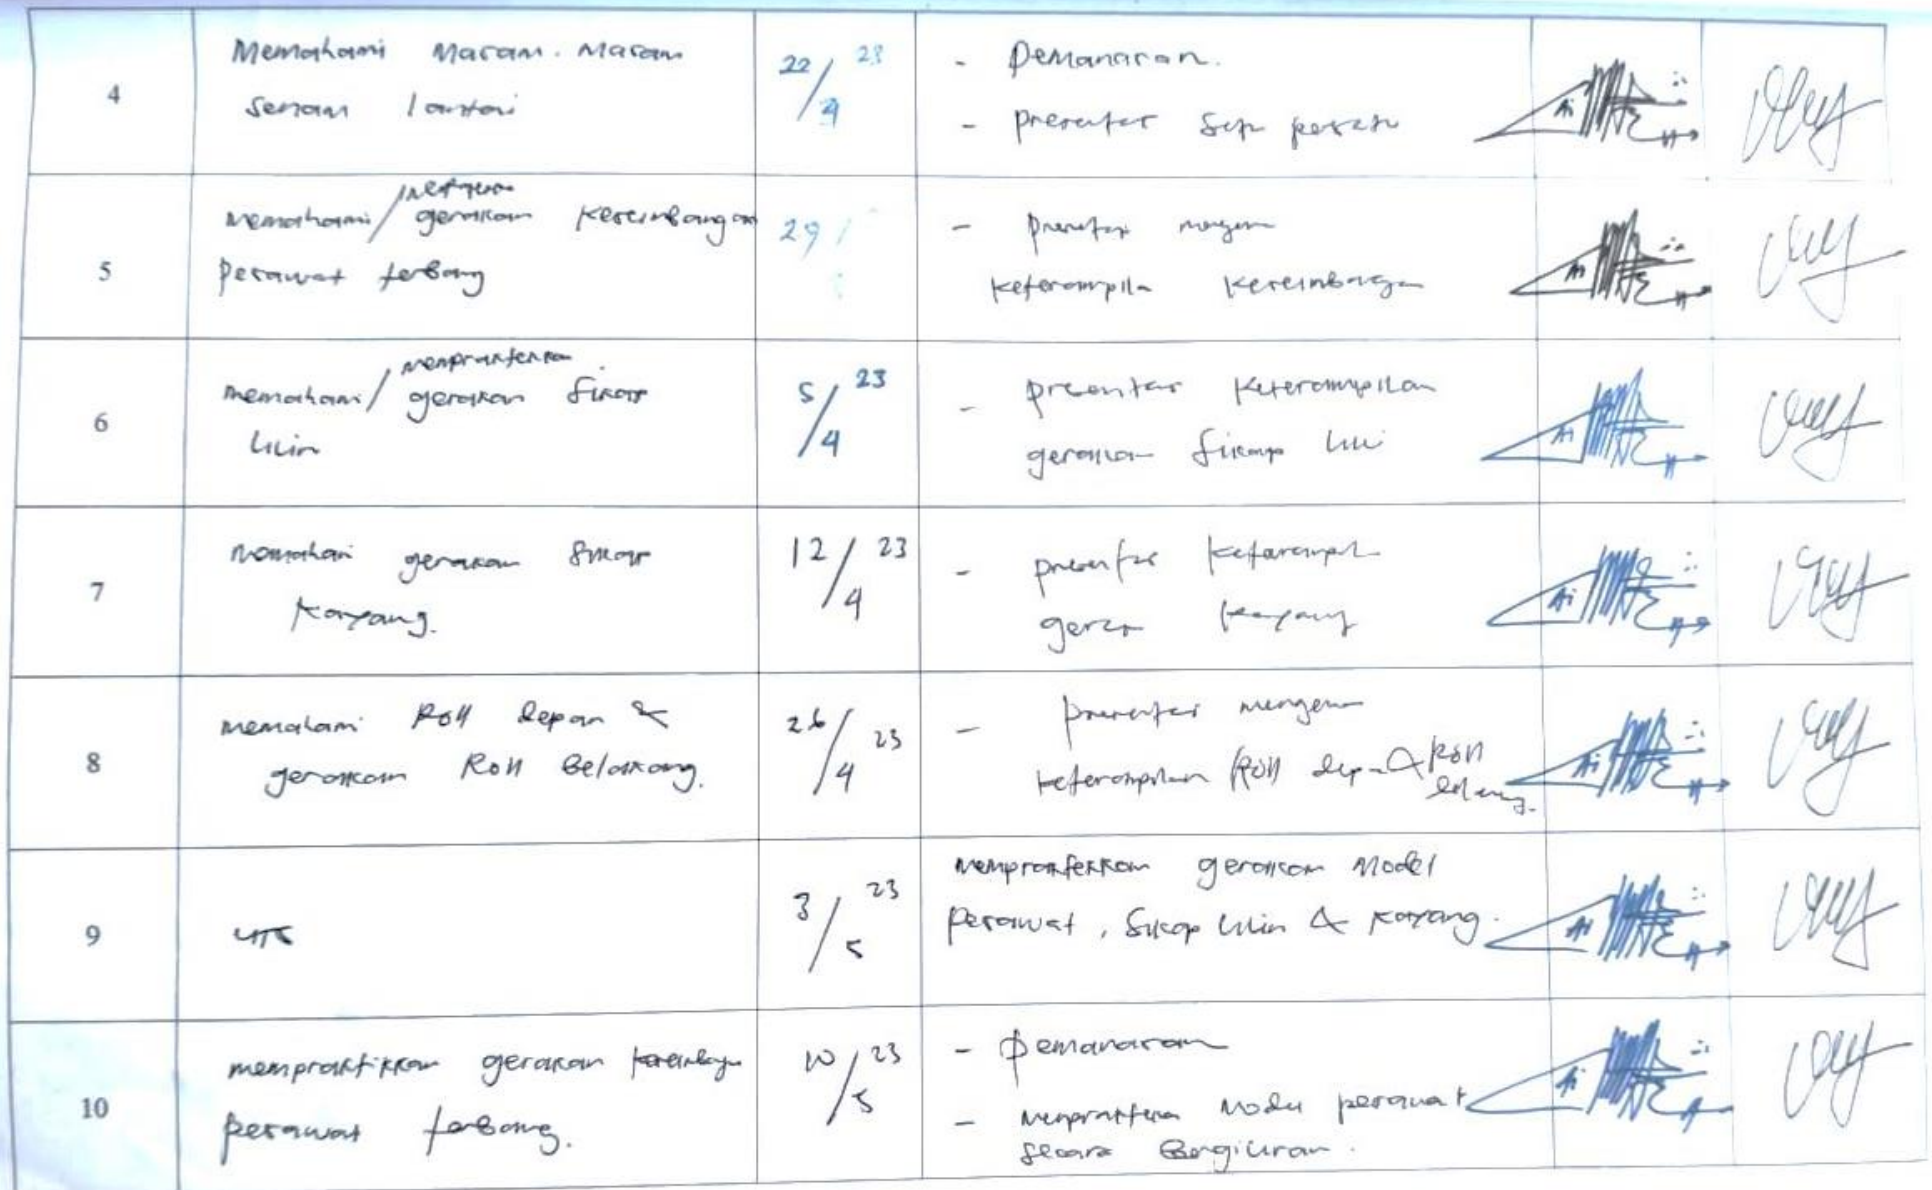 4
Memahami Macam. Macam
Senam lantai
22/3 23
- Pemanasan.
- presentasi
5
Memahami/ gerakan Keseimbangan
Pesawat terbang
29/
- mengenai
Keterampila Keseimbangan
6
memahami/ mempraktekkan
gerakan Sikap
Lilin
5/4 23
- presentasi Keterampilan
gerakan Sikap Lili
7
Memahami gerakan Sikap
Kayang.
12/4 23
- presentasi Keterampil
gerak Kayang
8
memahami Roll depan &
gerakan Roll Belakang.
26/4 23
- presentasi mengenai
keterampilan Roll depan & Roll
belakang.
9
UTS
3/5 23
Mempraktekkan gerakan Model
Pesawat, Sikap Lilin & Kayang.
10
mempraktikkan gerakan
Pesawat terbang.
10/5 23
- Pemanasan
- Model pesawat
secara Bergiliran.